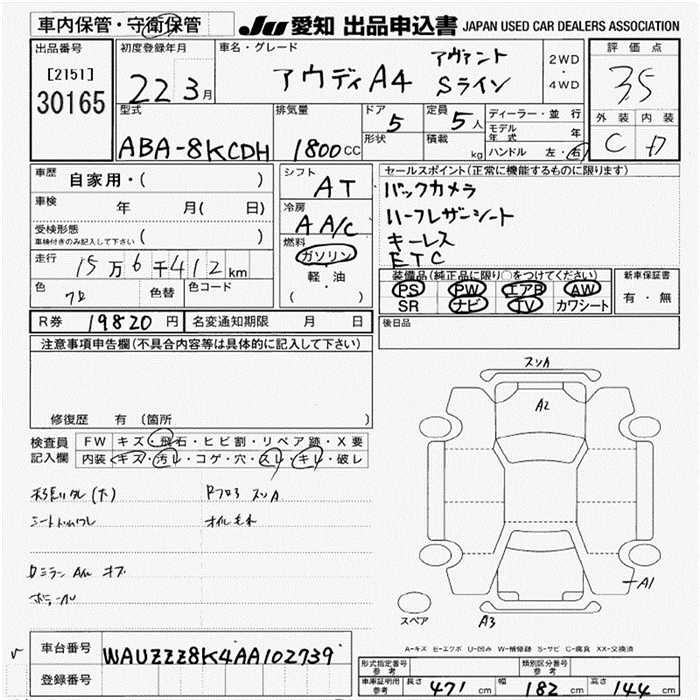 車内保管・守衛保管
JU 愛知 出品申込書 JAPAN USED CAR DEALERS ASSOCIATION
出品番号
[2151]
30165
初度登録年月
22 3月
車名・グレード
アウディA4 アヴァント
Sライン
2WD
・
4WD
評価点
3.5
外装 内装
C D
型式
ABA-8KCDH
排気量
1800cc
ドア
5
形状
定員
5人
積載
kg
ディーラー・並行
モデル
年式 年
ハンドル 左・右
車歴
自家用・( )
車検 年 月( 日)
受検形態
車検付きのみ記入して下さい ( )
走行
15万6千412km
色 色替 色コード
シフト
AT
冷房
AA/C
燃料
ガソリン
・
軽・油
( )
セールスポイント(正常に機能するものに限ります)
バックカメラ
ハーフレザーシート
キーレス
ETC
装備品(純正品に限り○をつけてください)
PS PW エアB AW
SR ナビ TV カワシート
新車保証書
有・無
R券 19820円 名変通知期限 月 日
後日品
注意事項申告欄(不具合内容等は具体的に記入して下さい)
修復歴 有(箇所 )
検査員
記入欄
FW キズ・飛石・ヒビ割・リペア跡・X要
内装 キズ・汚レ・コゲ・穴・スレ・キレ・破レ
スリA
A2
A1
A3
スペア
A-キズ E-エクボ U-凹み W-補修跡 S-サビ C-腐食 XX-交換済
車台番号 WAUZZZ8K4AA102739
登録番号
形式指定番号
参考
類別区分番号
参考
車庫証明用
参考
長さ 471 cm 幅 182 cm 高さ 144 cm